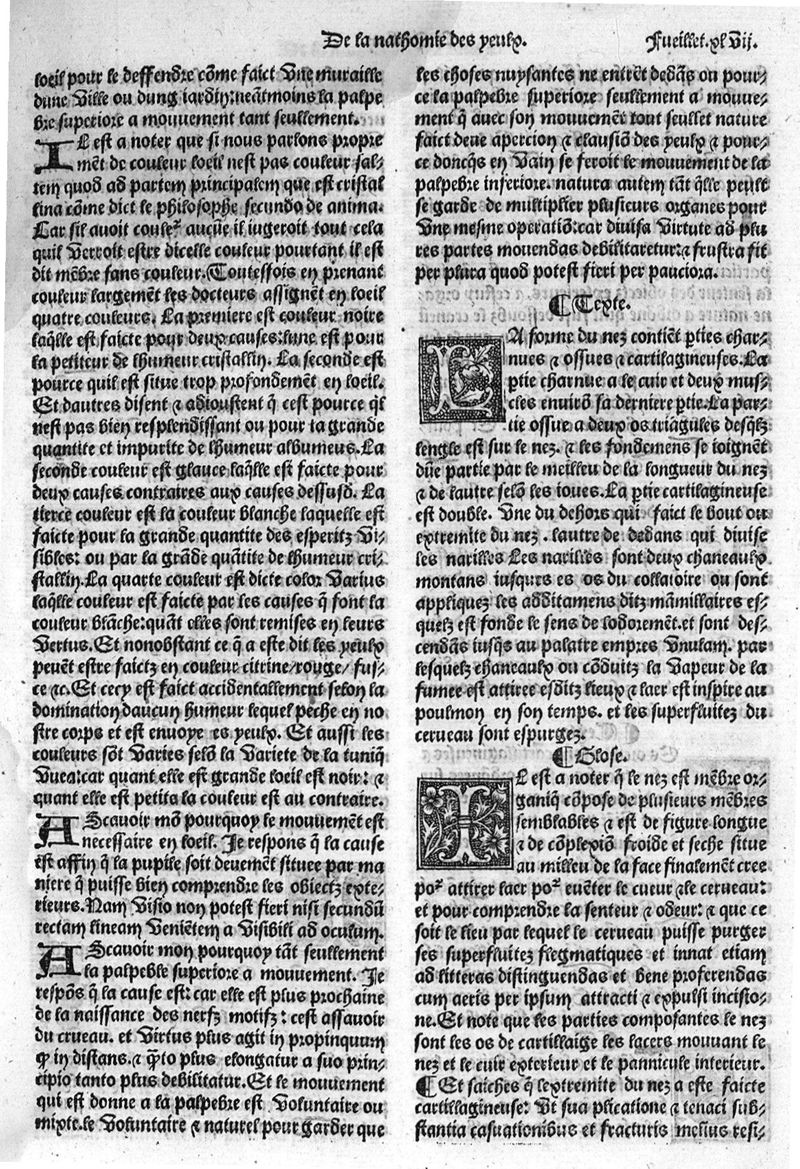 De la nathomie des yeulx.
Fueillet.xlvij.
loeil pour le deffendre cõme faict vne muraille
dune ville ou dung iardin:neãtmoins la palpe
bre superiore a mouvement tant seullement.
IL est a noter que si nous parlons propre
mẽt de couleur loeil nest pas couleur sal-
tem quod ad partem principalem que est cristal
lina cõme dict le philosophe secundo de anima.
Car sil avoit couleᷣ aucũe il iugeroit tout cela
quil verroit estre dicelle couleur pourtant il est
dit mẽbre sans couleur. Toutesfois en prenant
couleur largemẽt les docteurs assignẽt en loeil
quatre couleurs. La premiere est couleur noire
laq̃lle est faicte pour deux causes:lune est pour
la petiteur de lhumeur cristallin. La seconde est
pource quil est situe trop profondemẽt en loeil.
Et dautres disent ⁊ adioustent q̃ cest pource q̃l
nest pas bien resplendissant ou pour la grande
quantite et impurite de lhumeur albumeus. La
seconde couleur est glauce laq̃lle est faicte pour
deux causes contraires aux causes dessusd. La
tierce couleur est la couleur blanche laquelle est
faicte pour la grande quantite des esperitz vi-
sibles: ou par la grãde quãtite de lhumeur cri-
stallin. La quarte couleur est dicte color varius
laq̃lle couleur est faicte par les causes q̃ font la
couleur blãche:quãt elles sont remises en leurs
vertus. Et nonobstant ce q̃ a este dit les yeulx
peuẽt estre faictz en couleur citrine/rouge/ fus-
ce ⁊c. Et cecy est faict accidentallement selon la
domination daucun humeur lequel peche en no
stre corps et est envoye es yeulx. Et aussi les
couleurs sõt varies selõ la variete de la tuniq̃
vuea:car quant elle est grande loeil est noir: ⁊
quant elle est petita la couleur est au contraire.
AScavoir mõ pourquoy le mouvemẽt est
necessaire en loeil. Je respons q̃ la cause
est affin q̃ la pupile soit deuemẽt situee par ma
niere q̃ puisse bien comprendre les obiectz exte-
rieurs. Nam visio non potest fieri nisi secundũ
rectam lineam venientem a visibili ad oculum.
AScavoir mon pourquoy tãt seullement
la palpeble superiore a mouvement. Je
respõs q̃ la cause est: car elle est plus prochaine
de la naissance des nerfz motifz: cest assavoir
du crueau. et virtus plus agit in propinquum
ꝙ in distans. ⁊ q̃to plus elongatur a suo prin-
cipio tanto plus debilitatur. Et le mouvement
qui est donne a la palpebre est voluntaire ou
mixte. le voluntaire ⁊ naturel pour garder que
les choses nuysantes ne entrẽt dedãs ou pour-
ce la palpebre superiore seullement a mouve-
ment q̃ avec son mouvemẽt tout seullet nature
faict deue apercion ⁊ clausiõ des yeulx ⁊ pour-
ce doncq̃s en vain se feroit le mouvement de la
palpebre inferiore. natura autem tãt q̃lle peult
se garde de multiplier plusieurs organes pour
vne mesme operatiõ:car divisa virtute ad plu
res partes movendas debilitaretur:⁊ frustra fit
per plura quod potest fieri per pauciora.
¶ Texte.
LA forme du nez contiẽt ꝑties char-
nues ⁊ ossues ⁊ cartilagineuses. La
ꝑtie charnue a le cuir et deux mus-
cles envirõ sa derniere ꝑtie. La par-
tie ossue a deux os triãgules desq̃lz
lengle est sur le nez. ⁊ les fondemens se ioignẽt
dũe partie par le meilleu de la longueur du nez
⁊ de lautre selõ les ioues. La ꝑtie cartilagineuse
est double. Vne du dehors qui faict le bout ou
extremite du nez. lautre de dedans qui divise
les narilles Les narilles sont deux chaneaulx
montans iusques es os du collatoire ou sont
appliquez les additamens ditz mãmillaires es-
quelz est fonde le sens de lodorement. et sont des-
cendãs iusq̃s au palatre empres vuulam. par
lesquelz chaneaulx ou cõduitz la vapeur de la
fumee est attiree esditz lieux ⁊ laer est inspire au
poulmon en son temps. et les superfluitez du
cerueau sont espurgez.
¶ Glose.
IL est a noter q̃ le nez est mẽbre or-
ganiq̃ cõpose de plusieurs mẽbres
semblables ⁊ est de figure longue
⁊ de cõplexiõ froide et seche situe
au milleu de la face finalemẽt cree
poᷣ attirer laer poᷣ evẽter le cueur ⁊ le cerveau:
et pour comprendre la senteur ⁊ odeur: ⁊ que ce
soit le lieu par lequel le cerveau puisse purger
ses superfluitez flegmatiques et innat etiam
ad litteras distinguendas et bene proferendas
cum aeris per ipsum attracti ⁊ expulsi incisio-
ne. Et note que les parties composantes le nez
sont les os de cartillaige les lacers mouvant le
nez et le cuir exterieur et le pannicule interieur.
¶ Et saiches q̃ lextremite du nez a este faicte
cartillagineuse: vt sua plicatione ⁊ tenaci sub-
stantia casuationibus et fracturis melius resi-